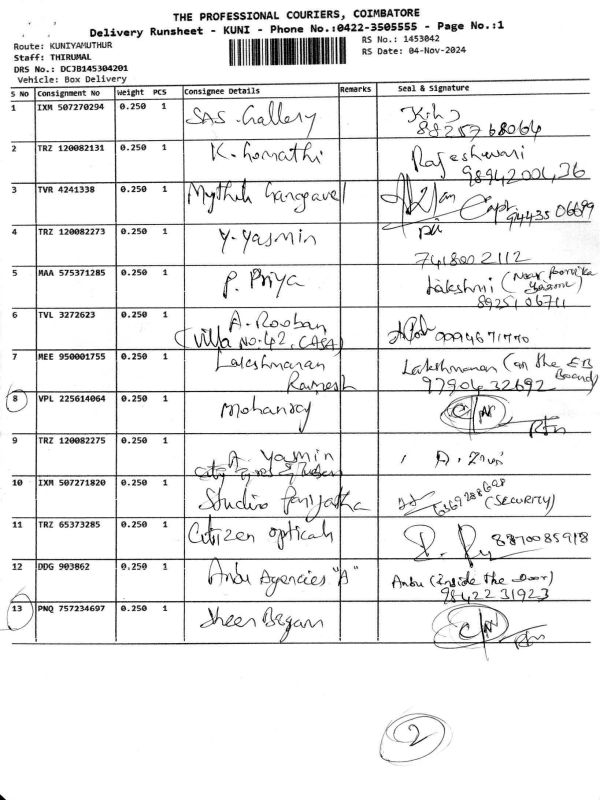 THE PROFESSIONAL COURIERS, COIMBATORE
Delivery Runsheet - KUNI - Phone No.:0422-3505555 - Page No.:1
Route: KUNIYAMUTHUR
RS No.: 1453042
Staff: THIRUMAL
RS Date: 04-Nov-2024
DRS No.: DCJB145304201
Vehicle: Box Delivery
S No Consignment No Weight PCS Consignee Details Remarks Seal & Signature
1 IXM 507270294 0.250 1 SAS Gallery
88257 68064
2 TRZ 120082131 0.250 1 K. Gomathi Rajeshwari
3 TVR 4241338 0.250 1
94435 06699
4 TRZ 120082273 0.250 1 Y. Yasmin
7418002112
5 MAA 575371285 0.250 1 P. Priya Lakshmi (Near
89251 06711
6 TVL 3272623 0.250 1 A. Rooban
(Villa No: 42, (CASA)
7 MEE 950001755 0.250 1 Lakshmanan Lakshmanan (on the EB
Ramesh Board)
97904 32692
8 VPL 225614064 0.250 1 Mohanraj
9 TRZ 120082275 0.250 1 A. Yasmin
10 IXM 507271820 0.250 1 Studio (SECURITY)
11 TRZ 65373285 0.250 1 Citizen opticals 8870085918
12 DDG 903862 0.250 1 Anbu Agencies "A" Anbu (Inside the Door)
98422 31923
13 PNQ 757234697 0.250 1 Begam
2